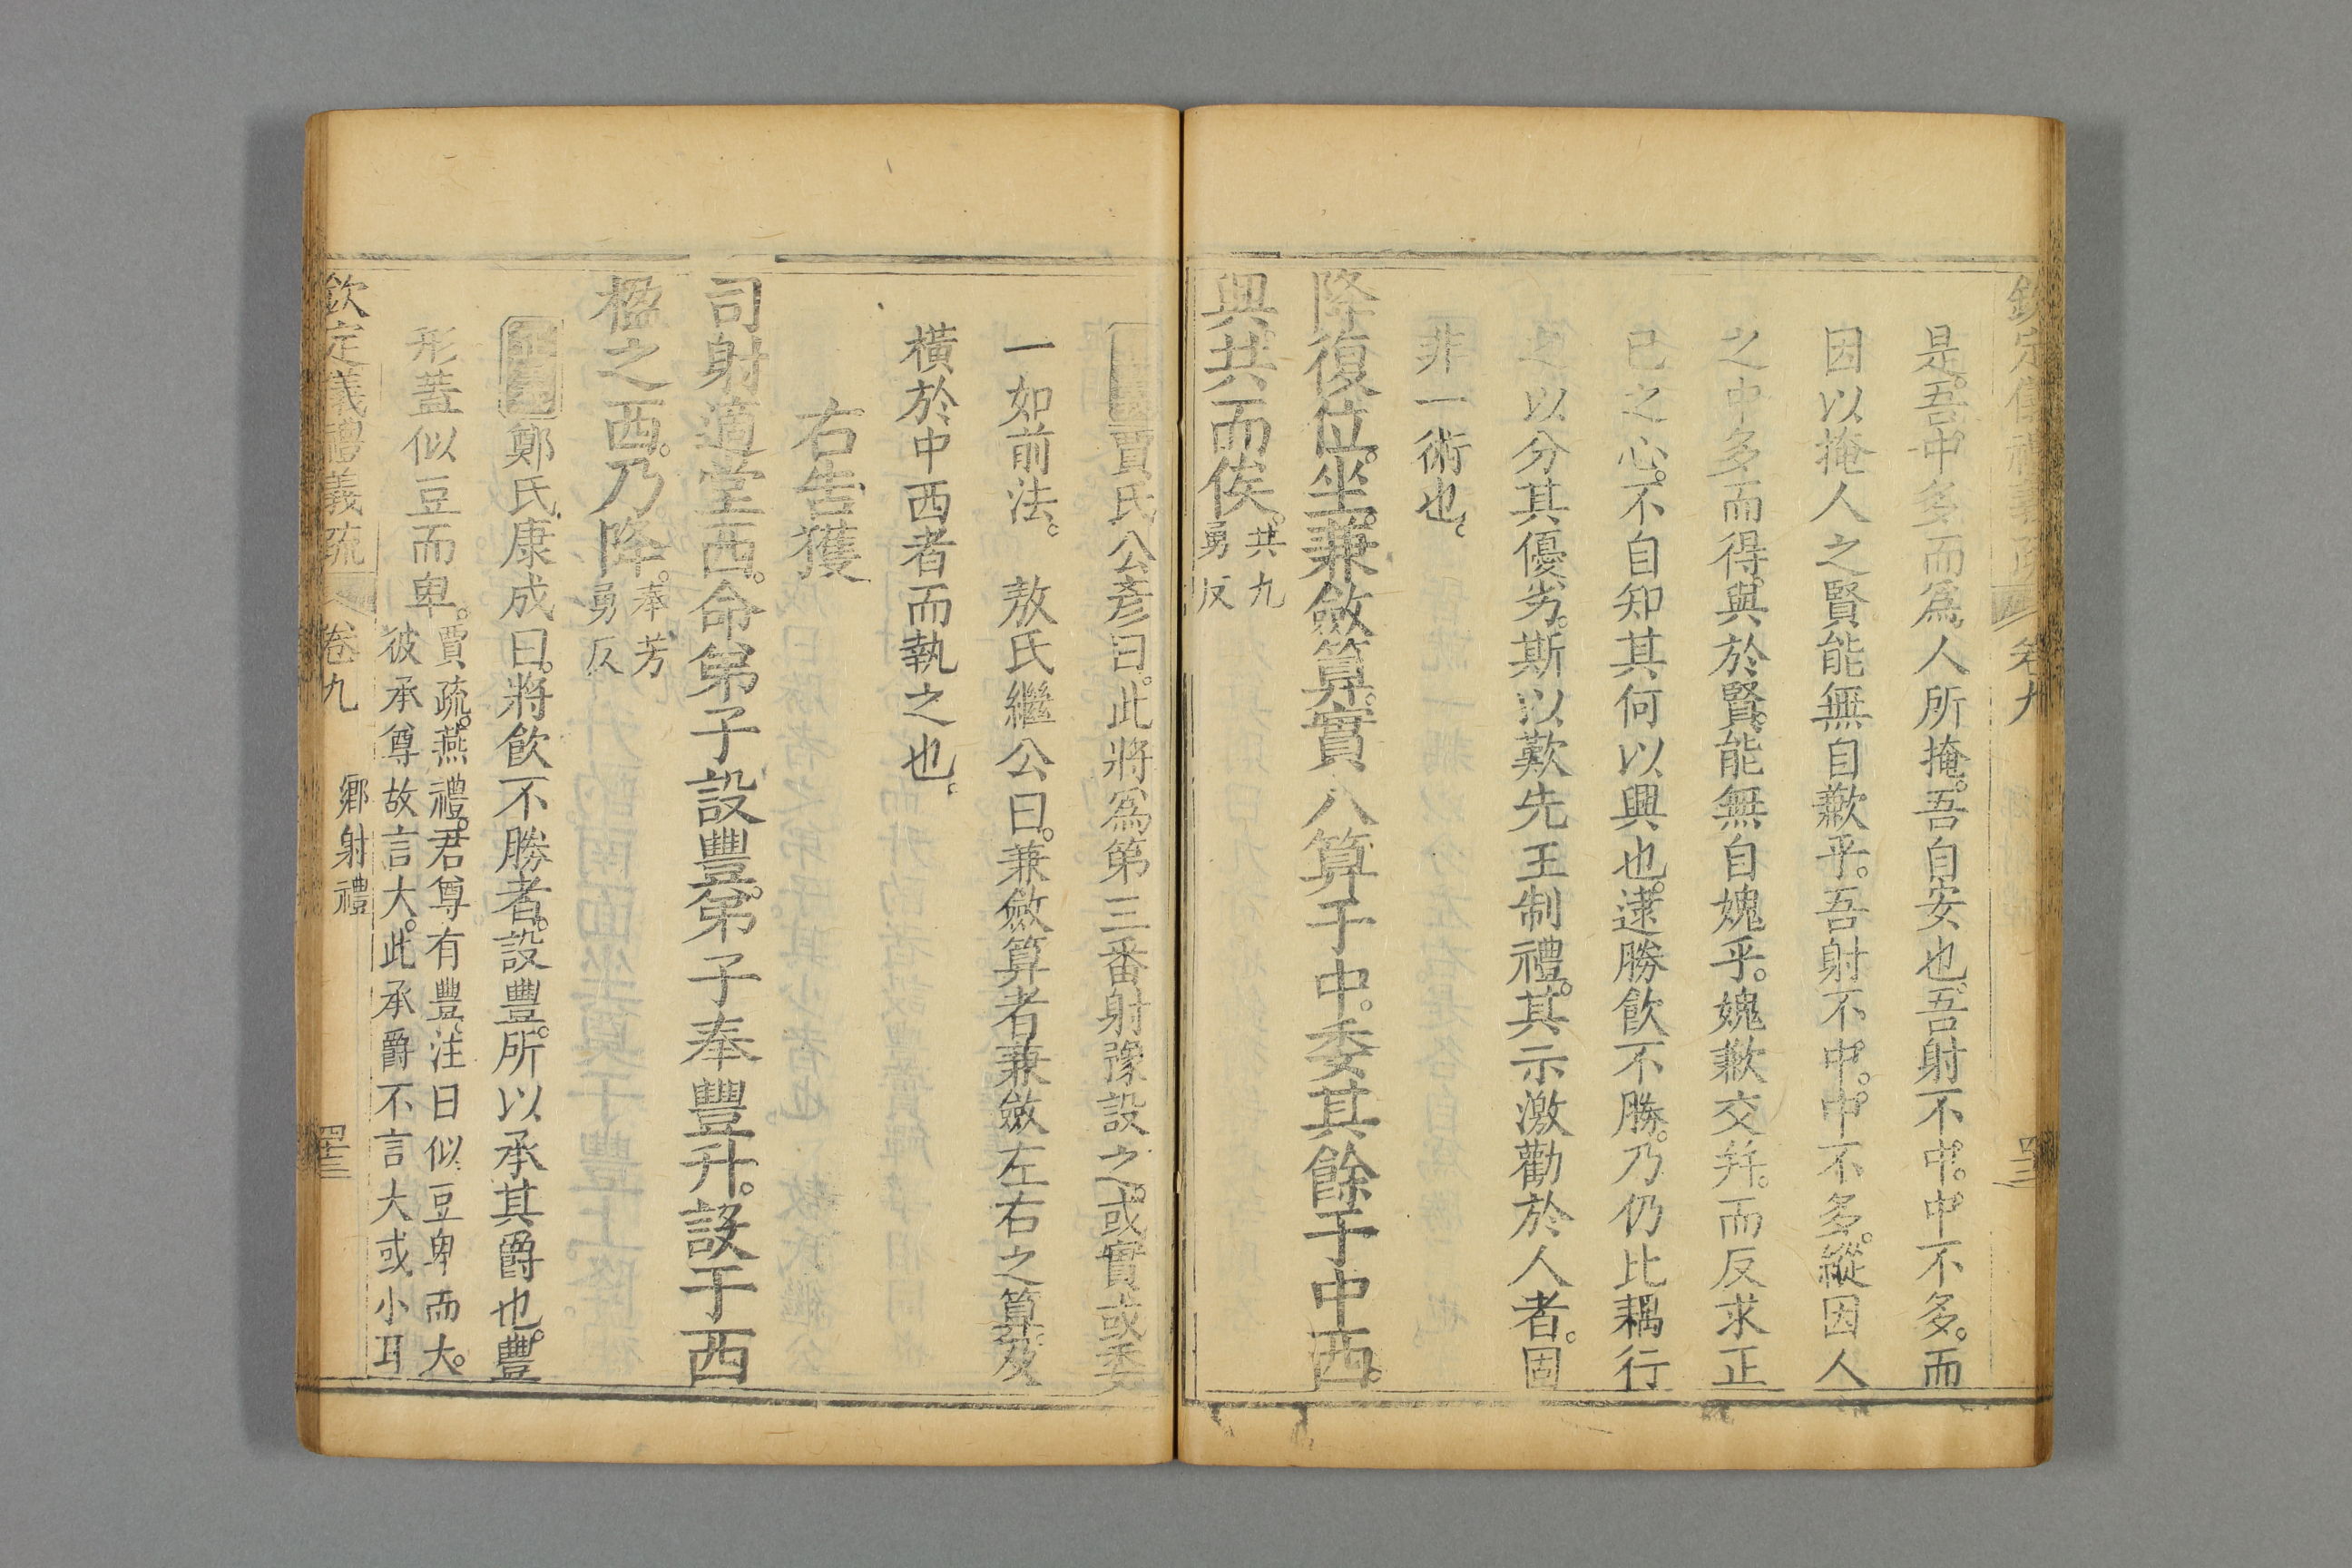 欽定儀禮義疏 卷九 四十三
是。吾中多而爲人所掩。吾自安也。吾射不中。中不多。而
因以掩人之賢能無自歉乎。吾射不中。中不多。縱因人
之中多而得。與於賢。能無自媿乎。媿歉交幷。而反求正
己之心。不自知其何以興也。逮勝飮不勝。乃仍比耦行
之以分其優劣。斯以歎先王制禮。其示激勸於人者。固
非一術也。
降復位。坐。兼斂算。實八算于中。委其餘于中西。
興。共而俟。共九勇反
賈氏公彥曰。此將爲第三番射豫設之。或實或委
一如前法。 敖氏繼公曰。兼斂算者兼斂左右之算。及
橫於中西者而執之也。
右告獲
司射適堂西。命弟子設豐。弟子奉豐升。設于西
楹之西。乃降。奉芳勇反
鄭氏康成曰。將飮不勝者。設豐。所以承其爵也。豐
形蓋似豆而卑。賈疏。燕禮。君尊有豐。注曰似豆卑而大。
彼承尊故言大。此承爵不言大或小耳
欽定儀禮義疏 卷九 鄉射禮 四十三